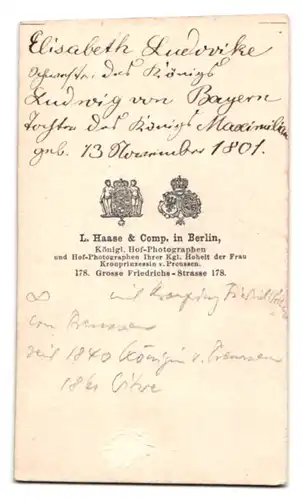 Elisabeth Ludovike
Schwester des Königs
Ludwig von Bayern
Tochter des Königs Maximilian
geb. 13 November 1801.
L. Haase & Comp. in Berlin,
Königl. Hof-Photographen
und Hof-Photographen Ihrer Kgl. Hoheit der Frau
Kronprinzessin v. Preussen.
178. Grosse Friedrichs-Strasse 178.
∞ mit Kronprinz
von Preussen
seit 1840 Königin v. Preussen
1861 Witwe